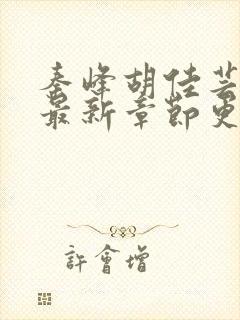 秦峰胡佳芸
最新章节更
許會增